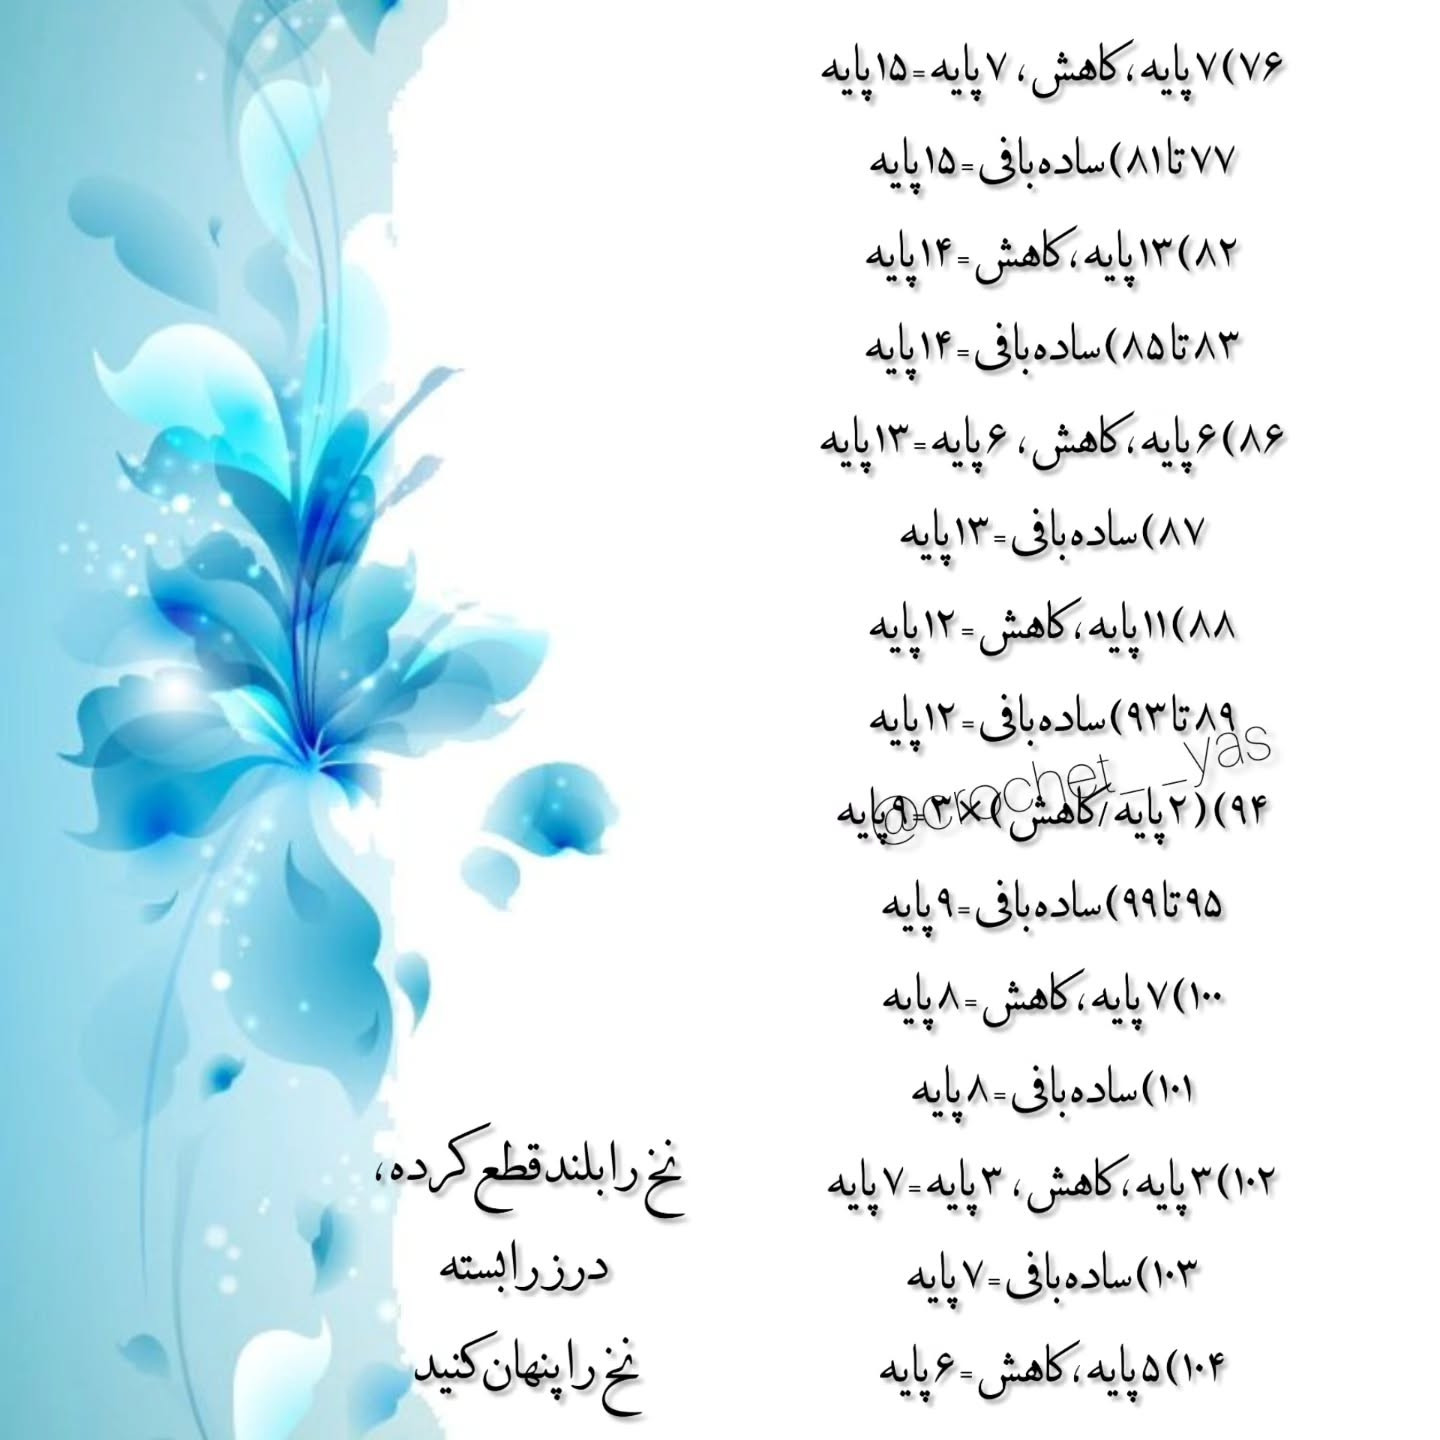 ۷۶)۷پایه،کاهش، ۷پایه=۱۵پایه
۷۷تا۸۱)ساده‌بافی=۱۵پایه
۸۲)۱۳پایه،کاهش=۱۴پایه
۸۳تا۸۵)ساده‌بافی=۱۴پایه
۸۶)۶پایه،کاهش، ۶پایه=۱۳پایه
۸۷)ساده‌بافی=۱۳پایه
۸۸)۱۱پایه،کاهش=۱۲پایه
۸۹تا۹۳)ساده‌بافی=۱۲پایه
@crochet__yas
۹۴)(۲پایه/کاهش)×۳=۹پایه
۹۵تا۹۹)ساده‌بافی=۹پایه
۱۰۰)۷پایه،کاهش=۸پایه
۱۰۱)ساده‌بافی=۸پایه
۱۰۲)۳پایه،کاهش، ۳پایه=۷پایه
۱۰۳)ساده‌بافی=۷پایه
۱۰۴)۵پایه،کاهش=۶پایه
نخ را بلند قطع کرده،
درز را بسته
نخ را پنهان کنید